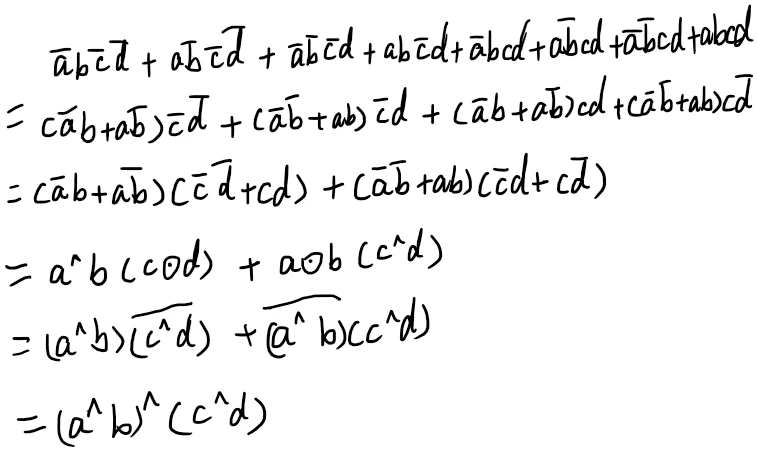 a̅bc̅d̅ + ab̅c̅d̅ + a̅b̅c̅d + abc̅d + a̅bcd + ab̅cd + a̅b̅cd + abcd
= (a̅b+ab̅)c̅d̅ + (a̅b̅+ab)c̅d + (a̅b+ab̅)cd + (a̅b̅+ab)cd̅
= (a̅b+ab̅)(c̅d̅+cd) + (a̅b̅+ab)(c̅d+cd̅)
= a^b (c⊙d) + a⊙b (c^d)
= (a^b)(c^d)̅ + (a^b)̅(c^d)
= (a^b)^(c^d)